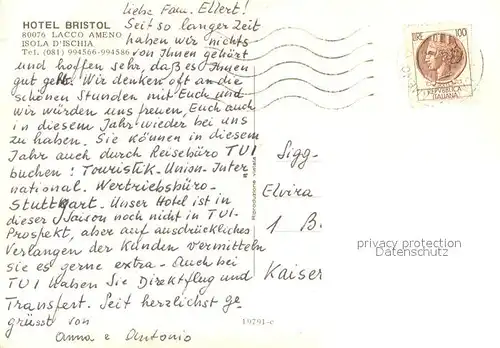 HOTEL BRISTOL
80076 LACCO AMENO
ISOLA D'ISCHIA
Tel: (081) 994566-994586
Liebe Fam. Ellert!
Seit so langer Zeit
haben wir nichts
von Ihnen gehört
und hoffen sehr, daß es Ihnen
gut geht. Wir denken oft an die
schönen Stunden mit Euch und
wir würden uns freuen, Euch auch
in diesem Jahr wieder bei uns
zu haben. Sie können in diesem
Jahr auch durch Reisebüro TUI
buchen! Touristik-Union-Inter
national. Wertriebsbüro-
Stuttgart. Unser Hotel ist in
dieser Saison noch nicht in TUI-
Prospekt, aber auf ausdrückliches
Verlangen der Kunden vermitteln
sie es gerne extra. Auch bei
TUI haben Sie Direktflug und
Transfert. Seit herzlichst ge-
grüsst von
Anna e Antonio
Riproduzione vietata
19791-c
LIRE 100
REPVBBLICA
ITALIANA
Sigg-
Elvira
1 B.
Kaiser
privacy protection
Datenschutz